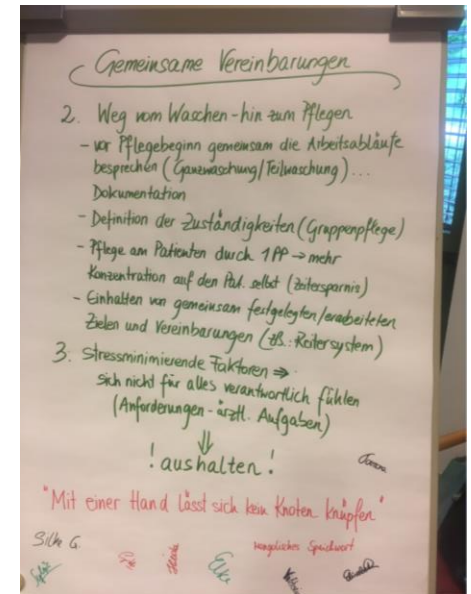 Gemeinsame Vereinbarungen
2. Weg vom Waschen - hin zum Pflegen
- vor Pflegebeginn gemeinsam die Arbeitsabläufe
besprechen (Ganzwaschung/Teilwaschung)...
Dokumentation
- Definition der Zuständigkeiten (Gruppenpflege)
- Pflege am Patienten durch 1PP → mehr
Konzentration auf den Pat. selbst (Zeitersparnis)
- Einhalten von gemeinsam festgelegten/erarbeiteten
Zielen und Vereinbarungen (zB.: Reitersystem)
3. Stressminimierende Faktoren ⇒
sich nicht für alles verantwortlich fühlen
(Anforderungen - ärztl. Aufgaben)
⇓
! aushalten !
"Mit einer Hand lässt sich kein Knoten knüpfen"
mongolisches Sprichwort
Silke G.
Elke